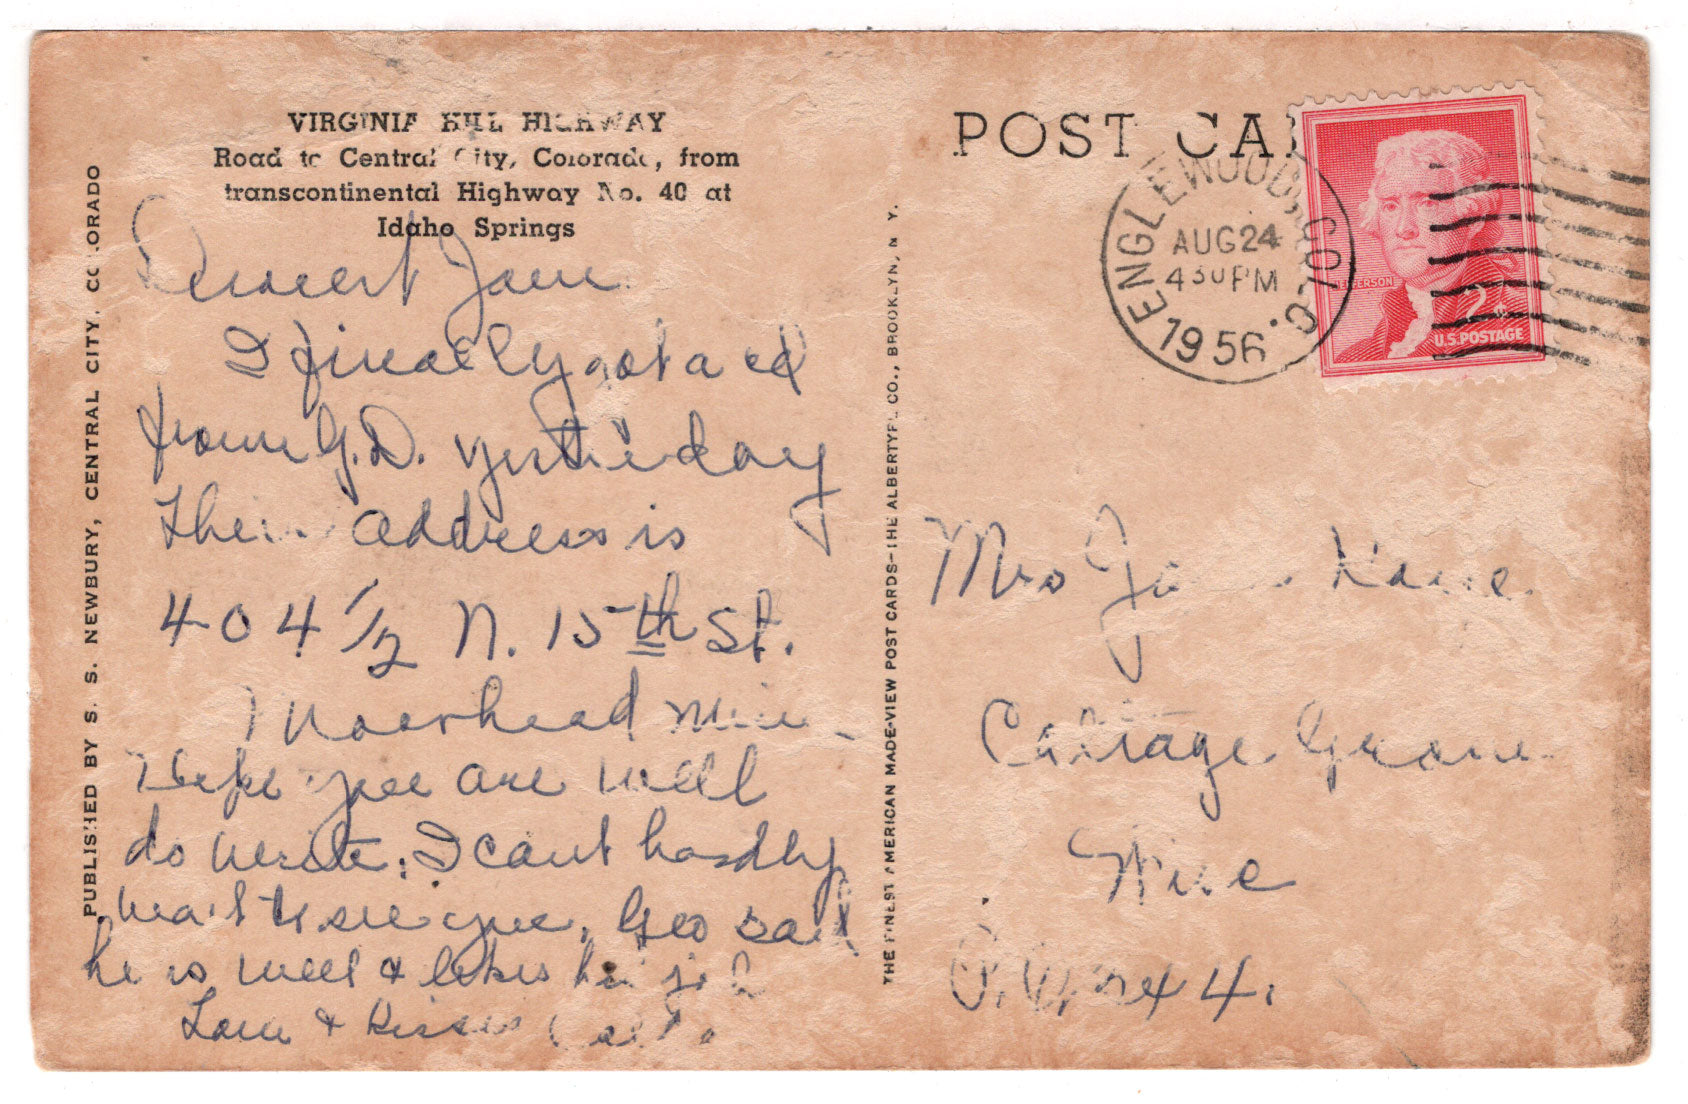 VIRGINIA HILL HIGHWAY
Road to Central City, Colorado, from
transcontinental Highway No. 40 at
Idaho Springs
PUBLISHED BY S. S. NEWBURY, CENTRAL CITY, COLORADO
Dearest Jane
I finally got a cd
from G.D. yesterday
Their address is
404 1/2 N. 15th St.
Moorhead Minn
Hope you are well
do write. I cant hardly
wait to see you. Geo said
he is well & likes his job
Love & Kisses
THE FINEST AMERICAN MADE VIEW POST CARDS-THE ALBERTYPE CO., BROOKLYN, N. Y.
POST CAR
ENGLEWOOD, COLO.
AUG 24
4 30 PM
1956
JEFFERSON
2¢
U.S. POSTAGE
Mrs Jane
Cottage Grove
Wisc
44.